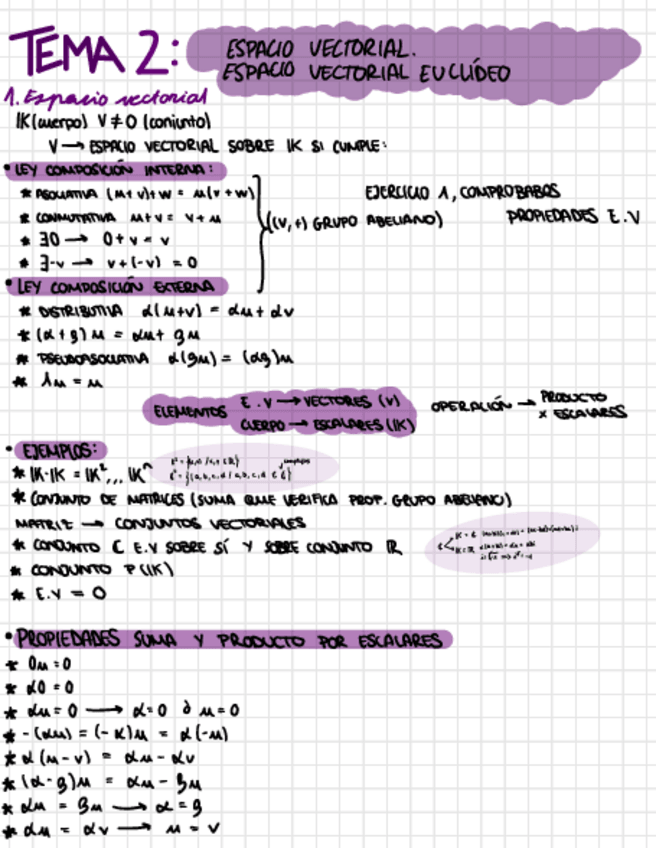 TEMA 2: ESPACIO VECTORIAL.
ESPACIO VECTORIAL EUCLÍDEO
1. Espacio vectorial
IK (cuerpo) V ≠ 0 (conjunto)
V → ESPACIO VECTORIAL SOBRE IK SI CUMPLE:
• LEY COMPOSICIÓN INTERNA:
* ASOCIATIVA (u+v)+w = u(v+w)
* CONMUTATIVA u+v = v+u
* ∃0 → 0+v = v
* ∃-v → v+(-v) = 0
((V,+) GRUPO ABELIANO)
EJERCICIO 1, COMPROBABOS
PROPIEDADES E.V
• LEY COMPOSICIÓN EXTERNA
* DISTRIBUTIVA α(u+v) = αu + αv
* (α+β)u = αu + βu
* PSEUDOASOCIATIVA α(βu) = (αβ)u
* 1u = u
ELEMENTOS E.V → VECTORES (V)
CUERPO → ESCALARES (IK)
OPERACIÓN → PRODUCTO
x ESCALARES
• EJEMPLOS:
* IK·IK = IK²,,, IKⁿ
* CONJUNTO DE MATRICES (SUMA QUE VERIFICA PROP. GRUPO ABELIANO)
MATRIZ → CONJUNTOS VECTORIALES
* CONJUNTO ℂ E.V SOBRE SÍ Y SOBRE CONJUNTO ℝ
* CONJUNTO P(IK)
* E.V = 0
• PROPIEDADES SUMA Y PRODUCTO POR ESCALARES
* 0u = 0
* α0 = 0
* αu = 0 → α=0 ò u=0
* -(αu) = (-α)u = α(-u)
* α(u-v) = αu - αv
* (α-β)u = αu - βu
* αu = βu → α = β
* αu = αv → u = v